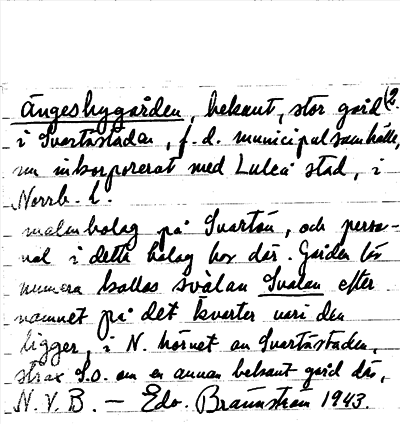 Ängesbygården, bekant, stor gård (2.
i Svartöstaden, f.d. municipalsamhälle,
nu inkorporerat med Luleå stad, i
Norrb. l.
malmbolag på Svartön, och perso-
nal i detta bolag bor där. Gården lär
numera kallas svalan Svalan efter
namnet på det kvarter vari den
ligger, i N. hörnet av Svartöstaden,
strax S.O. om en annan bekant gård där,
N.V.B. — Edv. Brännström 1943.